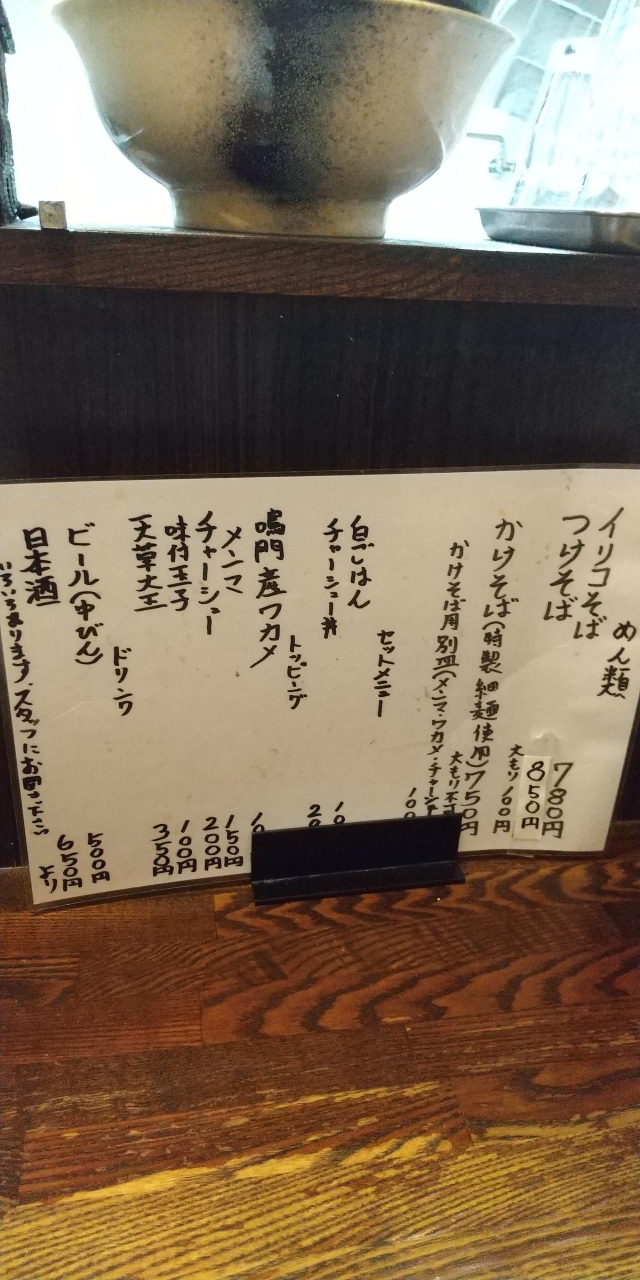 めん類
イリコそば 780円
つけそば 850円
大もり 100円
かけそば(特製細麺使用) 750円
大もり不可
かけそば用別皿(メンマ・ワカメ・チャーシュー
セットメニュー
白ごはん
チャーシュー丼
トッピング
鳴門産ワカメ
メンマ 150円
チャーシュー 200円
味付玉子 100円
天草大王 350円
ドリンク
ビール(中びん) 500円
日本酒 650円より
いろいろあります。スタッフにお問い下さい